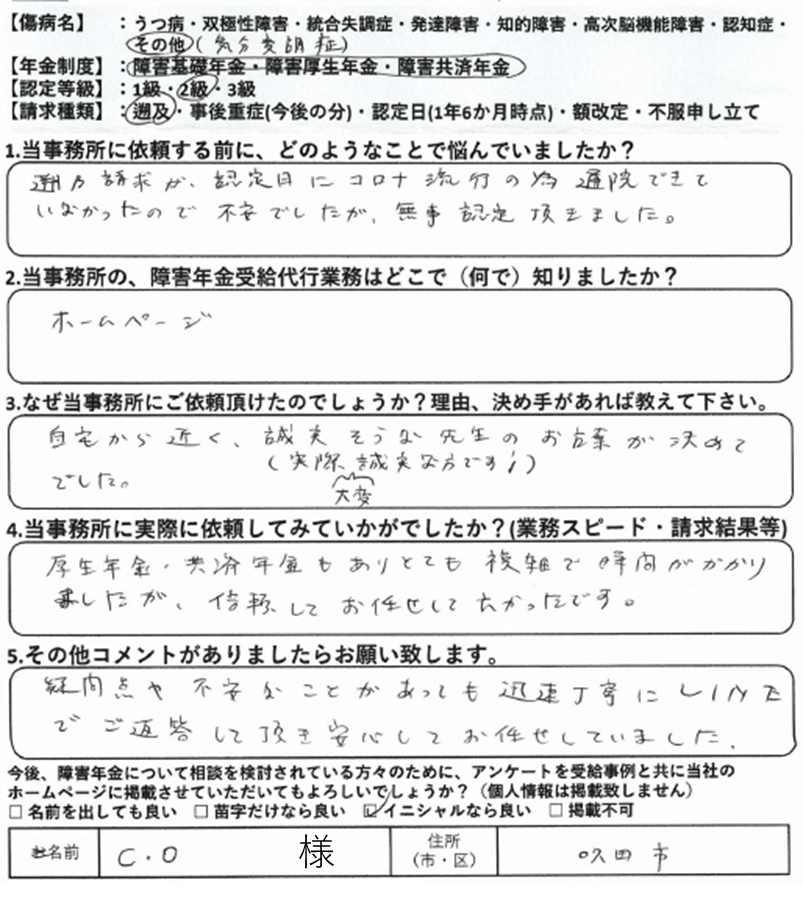 【傷病名】：うつ病・双極性障害・統合失調症・発達障害・知的障害・高次脳機能障害・認知症・
その他（気分変調症）
【年金制度】：障害基礎年金・障害厚生年金・障害共済年金
【認定等級】：1級・2級・3級
【請求種類】：遡及・事後重症(今後の分)・認定日(1年6か月時点)・額改定・不服申し立て
1.当事務所に依頼する前に、どのようなことで悩んでいましたか？
遡及請求が、認定日にコロナ流行の為通院できて
いなかったので不安でしたが、無事認定頂きました。
2.当事務所の、障害年金受給代行業務はどこで（何で）知りましたか？
ホームページ
3.なぜ当事務所にご依頼頂けたのでしょうか？理由、決め手があれば教えて下さい。
自宅から近く、誠実そうな先生のお言葉が決めて
（実際、誠実な方です！）
でした。
大変
4.当事務所に実際に依頼してみていかがでしたか？(業務スピード・請求結果等)
厚生年金・共済年金もありとても複雑で時間がかかり
ましたが、信頼してお任せしてよかったです。
5.その他コメントがありましたらお願い致します。
疑問点や不安なことがあっても迅速丁寧にLINE
でご返答して頂き安心してお任せしていました。
今後、障害年金について相談を検討されている方々のために、アンケートを受給事例と共に当社の
ホームページに掲載させていただいてもよろしいでしょうか？（個人情報は掲載致しません）
□ 名前を出しても良い　□ 苗字だけなら良い　☑ イニシャルなら良い　□ 掲載不可
お名前　C・O　様　住所　吹田市
（市・区）